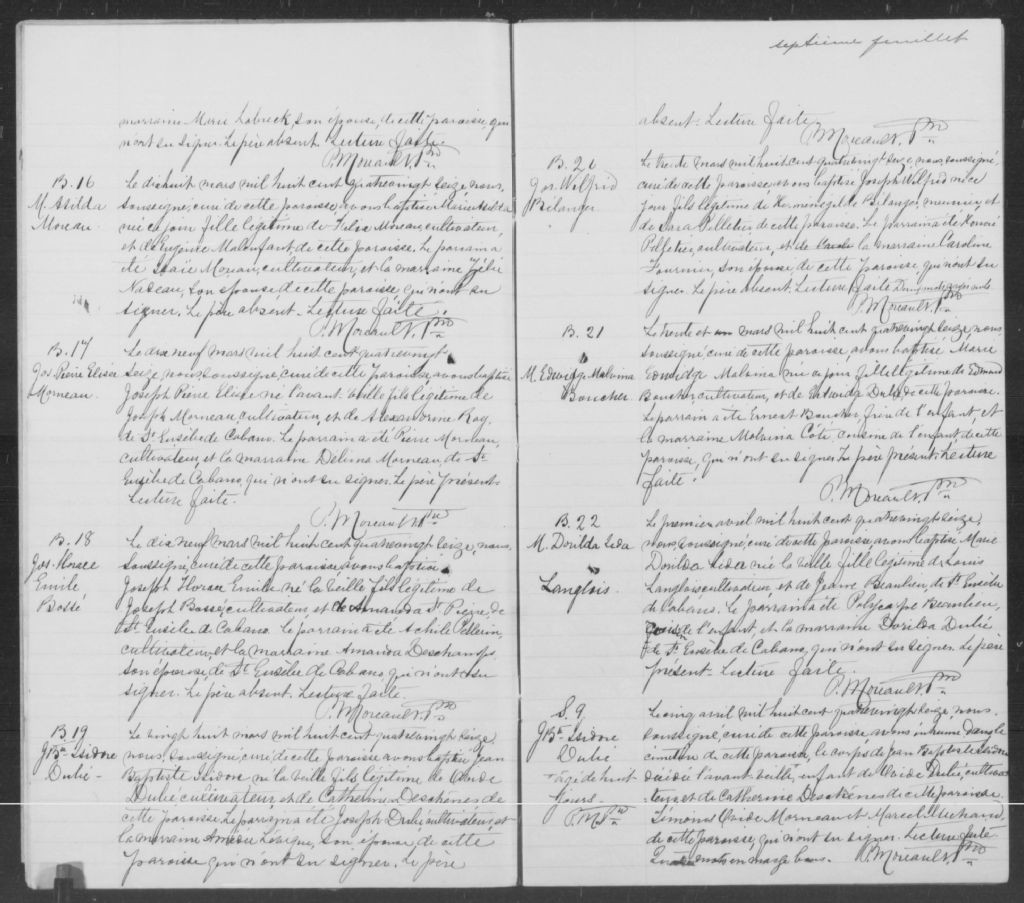 marraine Marie Labreck, son épouse, de cette paroisse, qui
n'ont su signer. Le père absent. Lecture faite.
P. Moreault, Ptre
B. 16
M. Asilda
Moreau
Le dix huit mars mil huit cent quatrevingt seize, nous,
soussigné, curé de cette paroisse, avons baptisé Marie Asilda
née ce jour fille légitime de Félix Moreau, cultivateur,
et de Eugénie Malenfant, de cette paroisse. Le parrain a
été Isaïe Moreau, cultivateur, et la marraine Zélie
Nadeau, son épouse de cette paroisse qui n'ont su
signer. Le père absent. Lecture faite.
P. Moreault, Ptre
B. 17
Jos. Pierre Elisée
Morneau.
Le dix neuf mars mil huit cent quatrevingt
seize, nous, soussigné, curé de cette paroisse, avons baptisé
Joseph Pierre Elisée né l'avant veille fils légitime de
Joseph Morneau cultivateur, et de Alexandrine Roy,
de St Eusèbe de Cabano. Le parrain a été Pierre Morneau,
cultivateur, et la marraine Délima Morneau, de St
Eusèbe de Cabano, qui n'ont su signer. Le père présent.
Lecture faite.
P. Moreault Ptre
B. 18
Jos. Horace
Emile
Bossé
Le dix neuf mars mil huit cent quatrevingt seize, nous,
soussigné, curé de cette paroisse avons baptisé
Joseph Horace Emile né la veille fils légitime de
Joseph Bossé, cultivateur, et de Amanda St Pierre, de
St Eusèbe de Cabano. Le parrain a été Achile Pellerin,
cultivateur, et la marraine Amanda Deschamps
son épouse, de St Eusèbe de Cabano, qui n'ont su
signer. Le père absent. Lecture faite.
P. Moreault, Ptre
B. 19
J Bte Isidore
Dubé
Le vingt huit mars mil huit cent quatrevingt seize
nous, soussigné, curé de cette paroisse avons baptisé Jean
Baptiste Isidore né la veille fils légitime de Ovide
Dubé, cultivateur, et de Catherine Deschênes de
cette paroisse. Le parrain a été Joseph Dubé cultivateur, et
la marraine Lévesque, son épouse de cette
paroisse qui n'ont su signer. Le père
septième feuillet
absent. Lecture faite.
P. Moreault, Ptre
B. 20
Jos. Wilfrid
Bélanger
Le trente mars mil huit cent quatrevingt seize, nous, soussigné,
curé de cette paroisse, avons baptisé Joseph Wilfrid né ce
jour fils légitime de Herménégilde Bélanger, meunier, et
de Sara Pelletier, de cette paroisse. Le parrain a été Honoré
Pelletier, cultivateur, et de la marraine Caroline
Fournier, son épouse de cette paroisse, qui n'ont su
signer. Le père absent. Lecture faite.
P. Moreault, Ptre
B. 21
M. Edwidge Malvina
Boucher
Le trente et un mars mil huit cent quatrevingt seize, nous
soussigné, curé de cette paroisse, avons baptisé Marie
Edwidge Malvina née ce jour fille légitime de Edmond
Boucher, cultivateur, et de Edwidge Dubé de cette paroisse.
Le parrain a été Ernest Boucher, frère de l'enfant, et
la marraine Malvina Côté, cousine de l'enfant, de cette
paroisse, qui n'ont su signer. Le père présent. Lecture
faite.
P. Moreault, Ptre
B. 22
M. Dorilda Lida
Langlois.
Le premier avril mil huit cent quatrevingt seize,
nous, soussigné, curé de cette paroisse avons baptisé Marie
Dorilda Lida née la veille fille légitime de Louis
Langlois cultivateur, et de Jeanne Beaulieu, de St Eusèbe
de Cabano. Le parrain a été Polycarpe Beaulieu,
de l'enfant, et la marraine Dorilda Dubé
de St Eusèbe de Cabano, qui n'ont su signer. Le père
présent. Lecture faite.
P. Moreault, Ptre
S. 9
J Bte Isidore
Dubé
âgé de huit
jours.
P. M Ptre
Le cinq avril mil huit cent quatrevingt seize, nous,
soussigné, curé de cette paroisse avons inhumé dans le
cimetière de cette paroisse, le corps de Jean Baptiste Isidore
décédé l'avant veille, enfant de Ovide Dubé, cultiva-
teur, et de Catherine Deschênes de cette paroisse.
Ovide Morneau et Marcel Michaud,
de cette paroisse, qui n'ont su signer. Lecture faite
mots en marge bons. P. Moreault, Ptre